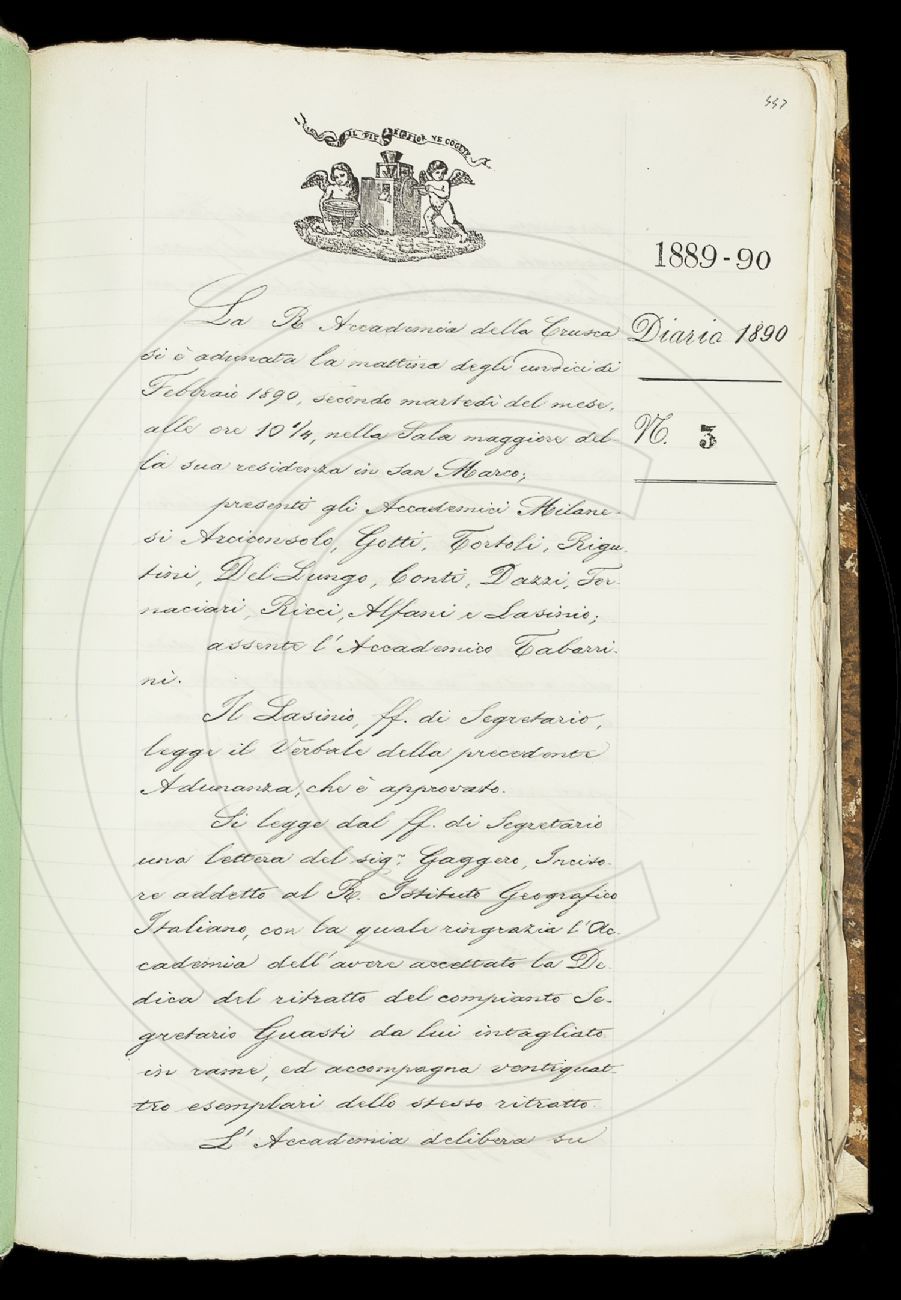 557
IL PIÙ BEL FIOR NE COGLIE
1889-90
Diario 1890
N. 3
La R. Accademia della Crusca
si è adunata la mattina degli undici di
Febbraio 1890, secondo martedì del mese,
alle ore 10 1/4, nella Sala maggiore del-
la sua residenza in San Marco;
presenti gli Accademici Milane-
si Arciconsolo, Gotti, Tortoli, Rigu-
tini, Del Lungo, Conti, Dazzi, For-
naciari, Ricci, Alfani e Lasinio;
assente l'Accademico Tabarri-
ni.
Il Lasinio, ff. di Segretario,
legge il Verbale della precedente
Adunanza, che è approvato.
Si legge dal ff. di Segretario
una lettera del sig.r Gaggero, Inciso-
re addetto al R. Istituto Geografico
Italiano, con la quale ringrazia l'Ac-
cademia dell'avere accettato la De-
dica del ritratto del compianto Se-
gretario Guasti da lui intagliato
in rame, ed accompagna ventiquat-
tro esemplari dello stesso ritratto.
L'Accademia delibera su